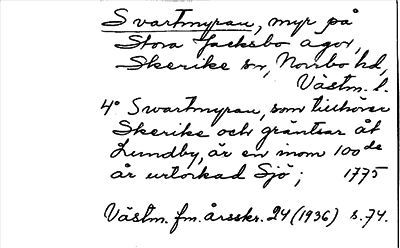 Svartmyran, myr på
Stora Jacksbo ägor,
Skerike sn, Norrbo hd,
Västm. l.
4° Swartmyran, som tillhörer
Skerike och gräntsar åt
Lundby, är en inom 100 de
år uttorkad Sjö; 1775
Västm. fm. årsskr. 24 (1936) s. 74.